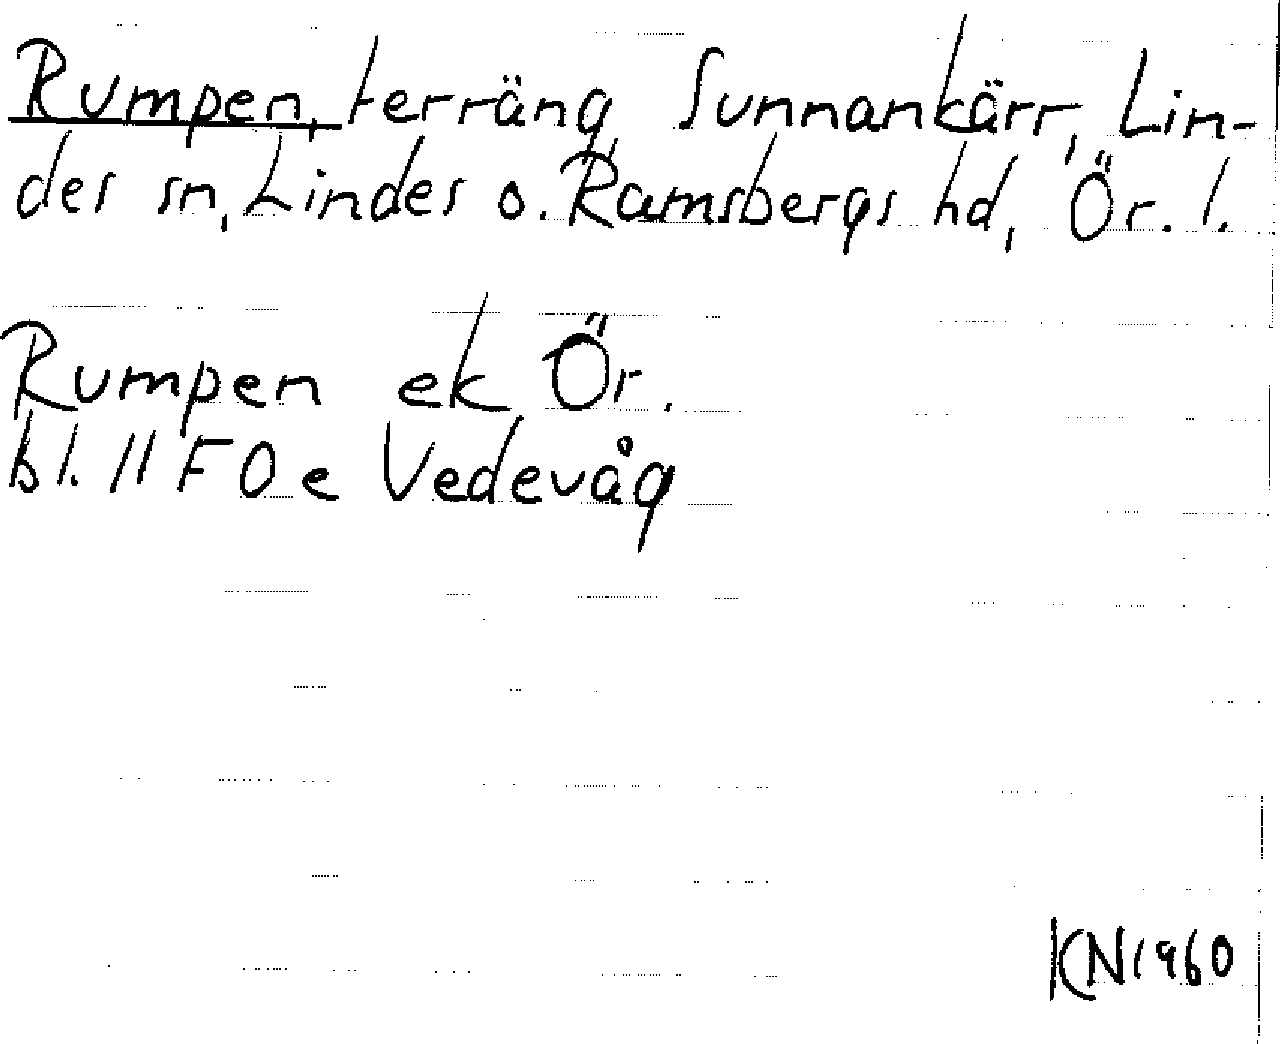 Rumpen, terräng, Sunnankärr, Lin-
des sn, Lindes o. Ramsbergs hd, Ör. l.
Rumpen ek Ör.
bl. 11 F 0 e Vedevåg
KN 1960